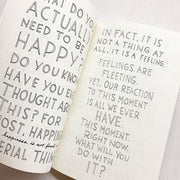 WHAT DO YOU
ACTUALLY
NEED TO BE
HAPPY?
DO YOU KNOW?
HAVE YOU EVER
THOUGHT ABOUT
THIS? FOR
MOST, HAPPINESS
happiness is not found in
ERIAL THINGS
IN FACT, IT IS
NOT A THING AT
ALL. IT IS A FEELING.
FEELINGS ARE
FLEETING.
YET, OUR REACTION
TO THIS MOMENT
IS ALL WE EVER
HAVE.
THIS MOMENT.
RIGHT NOW.
WHAT WILL YOU
DO WITH
IT?